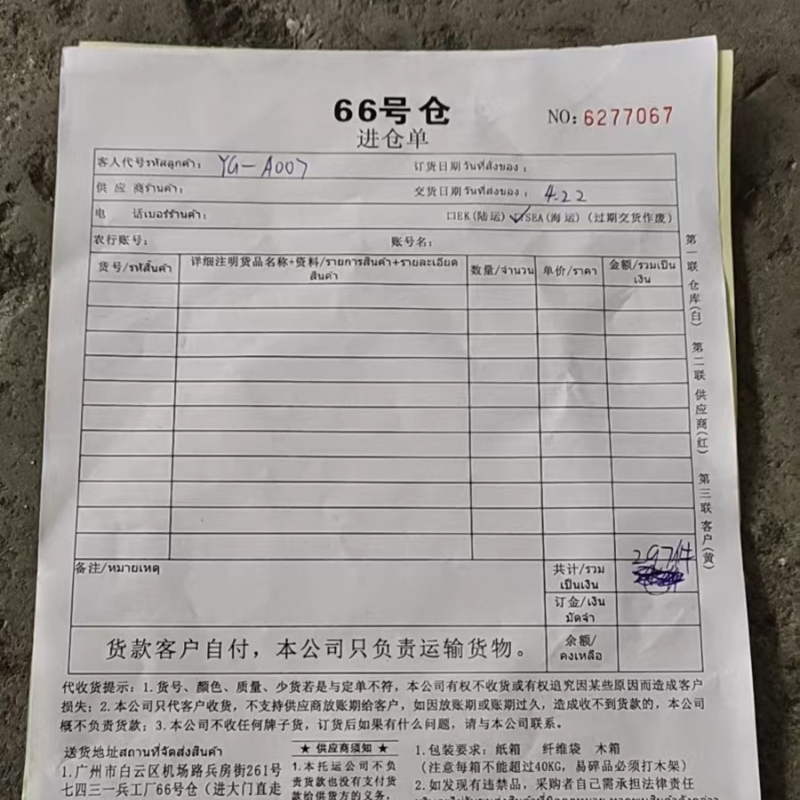 66号仓
NO: 6277067
进仓单
客人代号รหัสลูกค้า: YG-A007 订货日期วันที่สั่งของ:
供应商ร้านค้า: 交货日期วันที่ส่งของ: 4.22
电 话เบอร์ร้านค้า: 口EK(陆运) ✓SEA(海运) (过期交货作废)
农行账号: 账号名:
货号/รหัสสินค้า 详细注明货品名称+资料/รายการสินค้า+รายละเอียดสินค้า 数量/จำนวน 单价/ราคา 金额/รวมเป็นเงิน
第一联 仓库(白) 第二联 供应商(红) 第三联 客户(黄)
备注/หมายเหตุ 共计/รวมเป็นเงิน
订金/เงินมัดจำ
货款客户自付，本公司只负责运输货物。 余额/คงเหลือ
代收货提示: 1.货号、颜色、质量、少货若是与定单不符，本公司有权不收货或有权追究因某些原因而造成客户
损失; 2.本公司只代客户收货，不支持供应商放账期给客户，如因放账期或账期过久，造成收不到货款的，本公司
概不负责货款; 3.本公司不收任何牌子货，订货后如果有什么问题，请与本公司联系。
送货地址สถานที่จัดส่งสินค้า
1.广州市白云区机场路兵房街261号
七四三一兵工厂66号仓（进大门直走
★ 供应商须知 ★
1.本托运公司不负
责货款也没有支付货
款给供货方的义务，
1.包装要求: 纸箱 纤维袋 木箱
(注意每箱不能超过40KG，易碎品必须打木架)
2.如发现有违禁品，采购者自己需承担法律责任